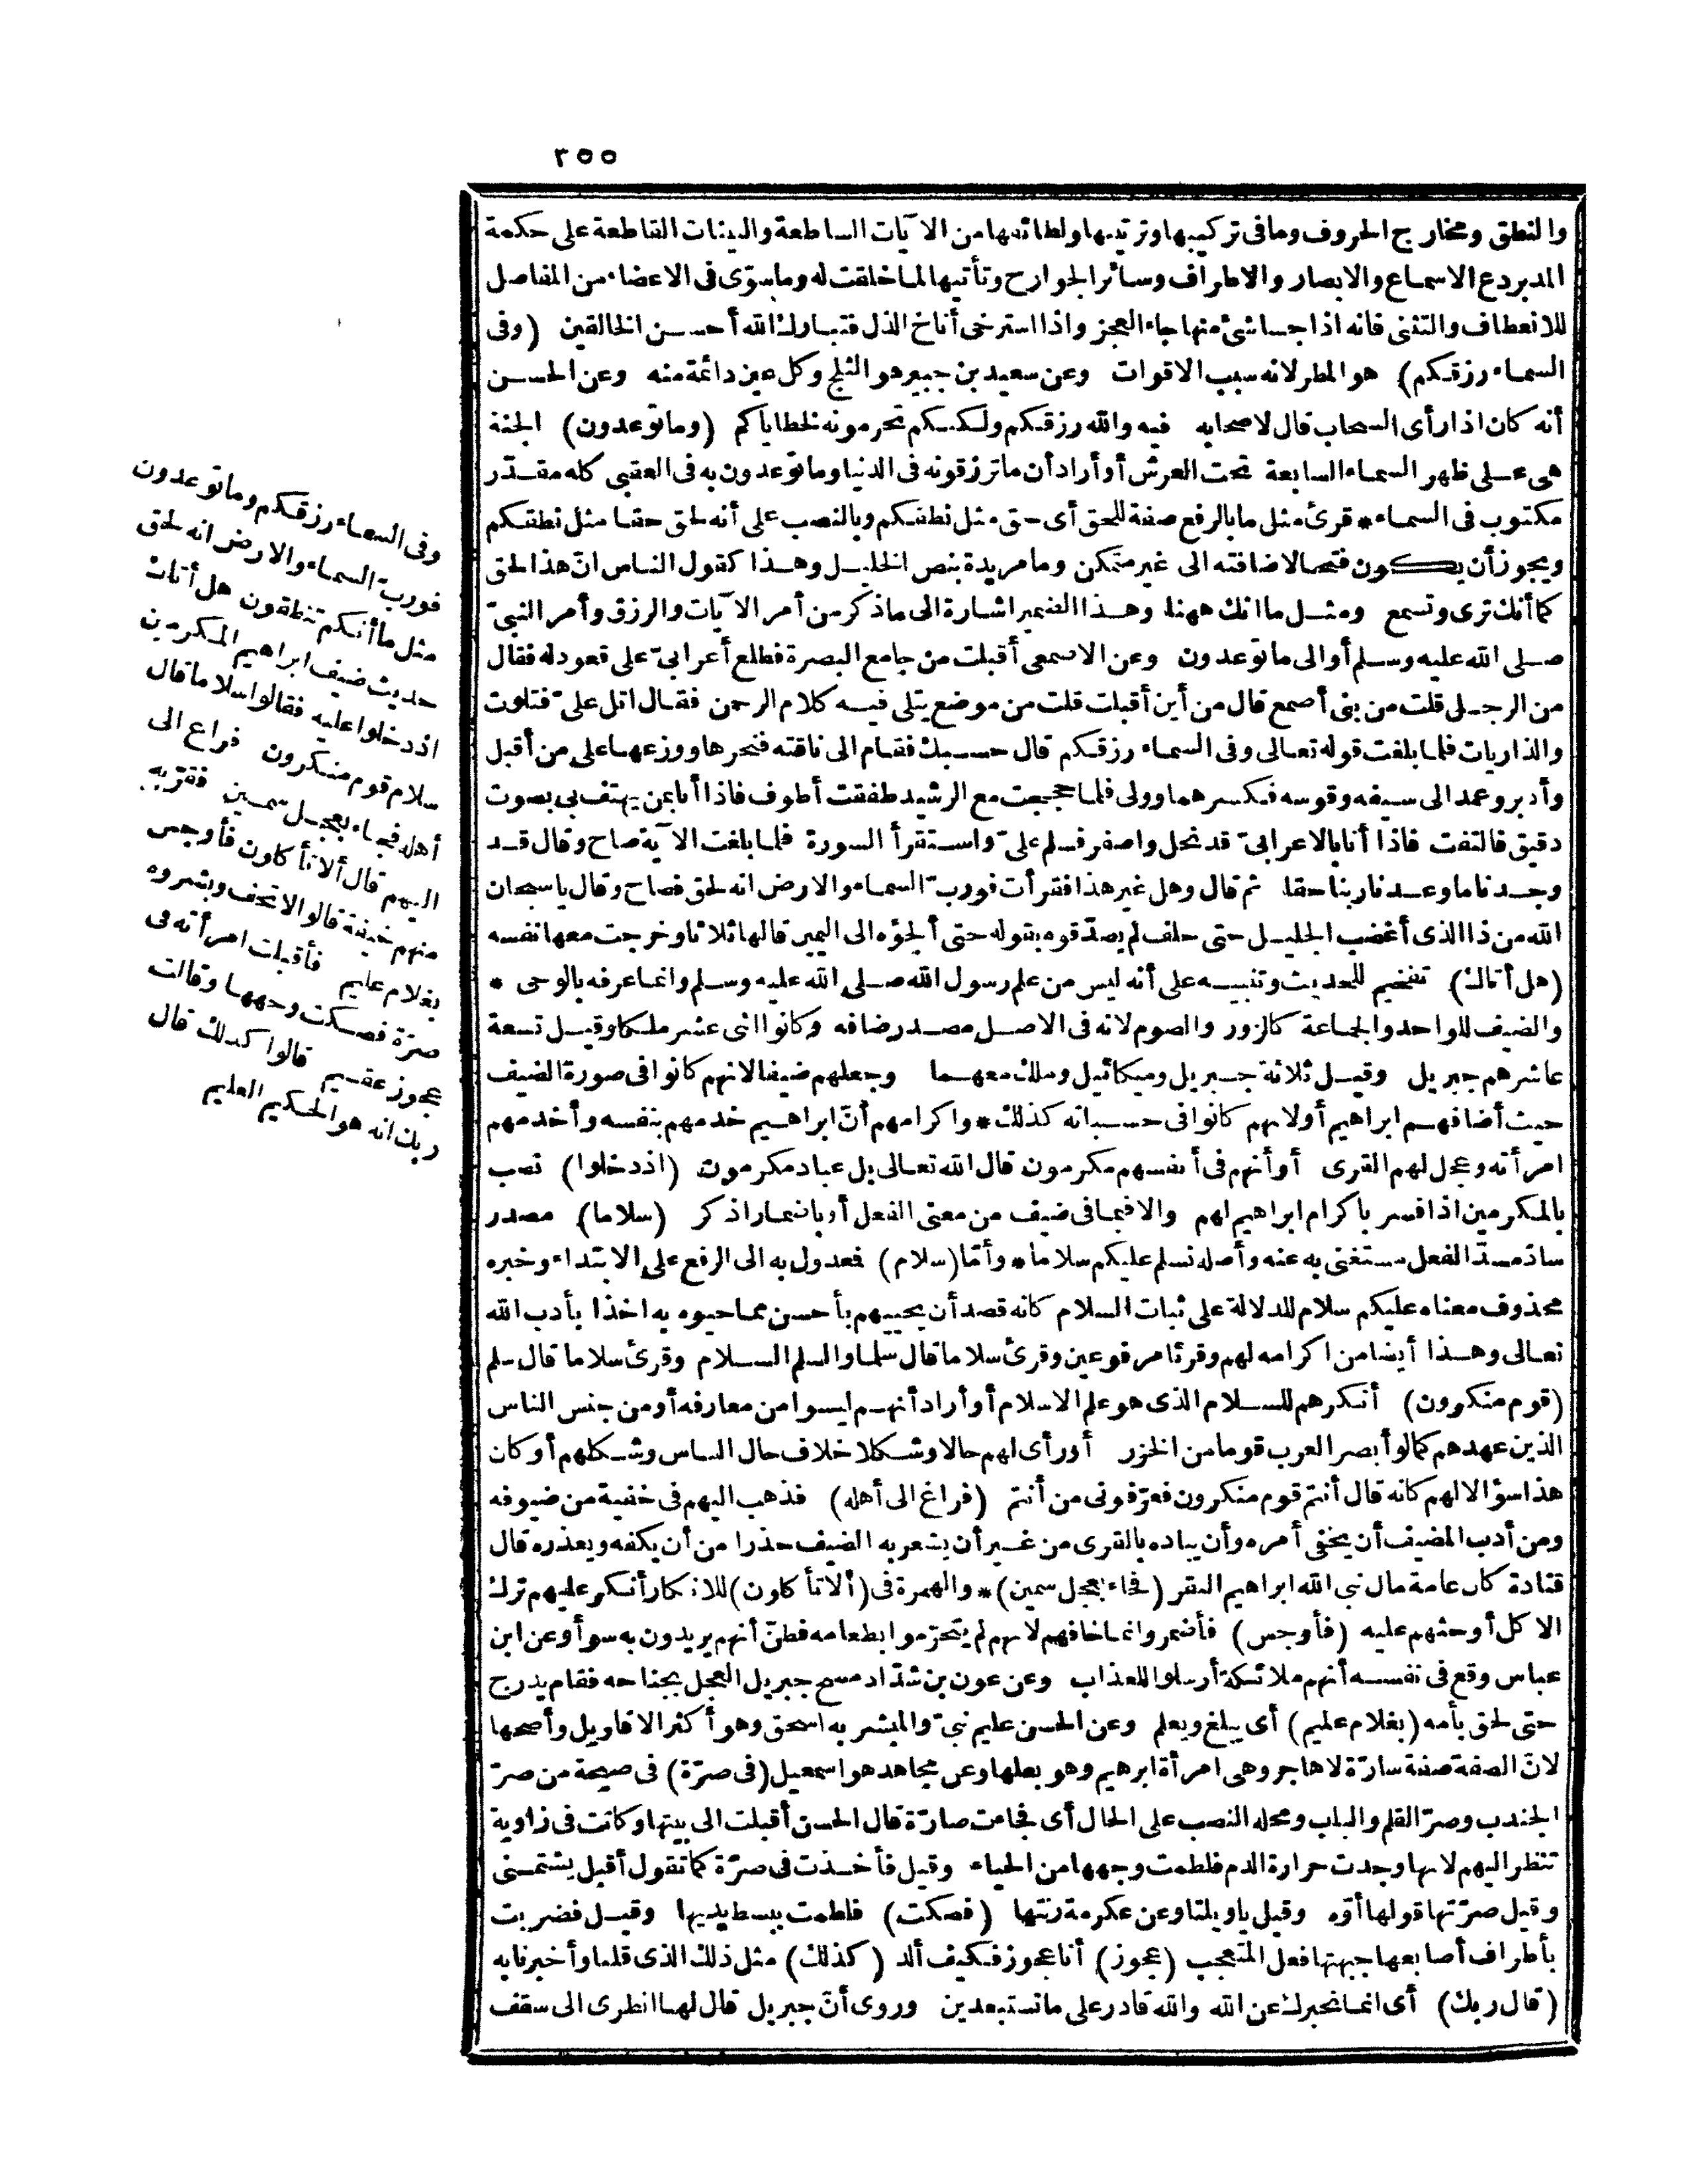 ٣٥٥
والنطق ومخارج الحروف وما فى تركيبها وترتيبها ولطائفها من الآيات الساطعة والبينات القاطعة على حكمة
المدبر دع الاسماع والابصار والاطراف وسائر الجوارح وتأتيها لما خلقت له وما سوّى فى الاعضاء من المفاصل
للانعطاف والتثنى فانه اذا جسا شئ منها جاء العجز واذا استرخى أناخ الذل فتبارك الله أحسن الخالقين (وفى
السماء رزقكم) هو المطر لانه سبب الاقوات وعن سعيد بن جبير هو الثلج وكل عين دائمة منه وعن الحسن
أنه كان اذا رأى السحاب قال لاصحابه فيه والله رزقكم ولكنكم تحرمونه لخطاياكم (وما توعدون) الجنة
هى على ظهر السماء السابعة تحت العرش أو أراد أن ما ترزقونه فى الدنيا وما توعدون به فى العقبى كله مقدّر
مكتوب فى السماء * قرئ مثل ما بالرفع صفة للحق أى حق مثل نطقكم وبالنصب على أنه لحق حقا مثل نطقكم
ويجوز أن يكون فتحا لاضافته الى غير متمكن وما مزيدة بنص الخليل وهذا كقول الناس انّ هذا لحق
كما أنك ترى وتسمع ومثل ما انك ههنا وهذا الضمير اشارة الى ما ذكر من أمر الآيات والرزق وأمر النبىّ
صلى الله عليه وسلم أو الى ما توعدون وعن الاصمعى أقبلت من جامع البصرة فطلع أعرابىّ على قعود له فقال
من الرجل قلت من بنى أصمع قال من أين أقبلت قلت من موضع يتلى فيه كلام الرحمن فقال اتل علىّ فتلوت
والذاريات فلما بلغت قوله تعالى وفى السماء رزقكم قال حسبك فقام الى ناقته فنحرها ووزعها على من أقبل
وأدبر وعمد الى سيفه وقوسه فكسرهما وولى فلما حججت مع الرشيد طفقت أطوف فاذا أنا بمن يهتف بى بصوت
دقيق فالتفت فاذا أنا بالاعرابىّ قد نحل واصفر فسلم علىّ واستقرأ السورة فلما بلغت الآية صاح وقال قد
وجدنا ما وعدنا ربنا حقا ثم قال وهل غير هذا فقرأت فوربّ السماء والارض انه لحق فصاح وقال يا سبحان
الله من ذا الذى أغضب الجليل حتى حلف لم يصدّقوه بقوله حتى ألجؤه الى اليمين قالها ثلاثا وخرجت معها نفسه
(هل أتاك) تفخيم للحديث وتنبيه على أنه ليس من علم رسول الله صلى الله عليه وسلم وانما عرفه بالوحى *
والضيف للواحد والجماعة كالزور والصوم لانه فى الاصل مصدر ضافه وكانوا اثنى عشر ملكا وقيل تسعة
عاشرهم جبريل وقيل ثلاثة جبريل وميكائيل وملك معهما وجعلهم ضيفا لانهم كانوا فى صورة الضيف
حيث أضافهم ابراهيم أو لانهم كانوا فى حسبانه كذلك * واكرامهم أنّ ابراهيم خدمهم بنفسه وأخدمهم
امرأته وعجل لهم القرى أو أنهم فى أنفسهم مكرمون قال الله تعالى بل عباد مكرمون (اذ دخلوا) نصب
بالمكرمين اذا فسر باكرام ابراهيم لهم والا فبما فى ضيف من معنى الفعل أو باضمار اذكر (سلاما) مصدر
سادّ مسدّ الفعل مستغنى به عنه وأصله نسلم عليكم سلاما * وأمّا (سلام) فعدول به الى الرفع على الابتداء وخبره
محذوف معناه عليكم سلام للدلالة على ثبات السلام كانه قصد أن يحييهم بأحسن مما حيوه به اخذا بأدب الله
تعالى وهذا أيضا من اكرامه لهم وقرئا مرفوعين وقرئ سلاما قال سلما والسلم السلام وقرئ سلاما قال سلم
(قوم منكرون) أنكرهم للسلام الذى هو علم الاسلام أو أراد أنهم ليسوا من معارفه أو من جنس الناس
الذين عهدهم كما لو أبصر العرب قوما من الخزر أو رأى لهم حالا وشكلا خلاف حال الناس وشكلهم أو كان
هذا سؤالا لهم كانه قال أنتم قوم منكرون فعرّفونى من أنتم (فراغ الى أهله) فذهب اليهم فى خفية من ضيوفه
ومن أدب المضيف أن يخفى أمره وأن يباده بالقرى من غير أن يشعر به الضيف حذرا من أن يكفه ويعذره قال
قتادة كان عامة مال نبى الله ابراهيم البقر (فجاء بعجل سمين) * والهمزة فى (ألا تأكلون) للانكار أنكر عليهم ترك
الاكل أو حثهم عليه (فأوجس) فأضمر وانما خافهم لانهم لم يتحرّموا بطعامه فظنّ أنهم يريدون به سوأ وعن ابن
عباس وقع فى نفسه أنهم ملائكة أرسلوا للعذاب وعن عون بن شدّاد مسح جبريل العجل بجناحه فقام يدرج
حتى لحق بأمه (بغلام عليم) أى يبلغ ويعلم وعن الحسن عليم نبىّ والمبشر به اسحق وهو أكثر الاقاويل وأصحها
لانّ الصفة صفة سارّة لا هاجر وهى امرأة ابرهيم وهو بعلها وعن مجاهد هو اسمعيل (فى صرّة) فى صيحة من صرّ
الجندب وصرّ القلم والباب ومحله النصب على الحال أى فجاءت صارّة قال الحسن أقبلت الى بيتها وكانت فى زاوية
تنظر اليهم لانها وجدت حرارة الدم فلطمت وجهها من الحياء وقيل فأخذت فى صرّة كما تقول أقبل يشتمنى
وقيل صرّتها قولها أوّه وقيل يا ويلتا وعن عكرمة رنتها (فصكت) فلطمت ببسط يديها وقيل فضربت
بأطراف أصابعها جبهتها فعل المتعجب (عجوز) أنا عجوز فكيف ألد (كذلك) مثل ذلك الذى قلنا وأخبرنا به
(قال ربك) أى انما نخبرك عن الله والله قادر على ما تستبعدين وروى أنّ جبريل قال لها انظرى الى سقف
وفى السماء رزقكم وما توعدون
فوربّ السماء والارض انه لحق
مثل ما أنكم تنطقون هل أتاك
حديث ضيف ابراهيم المكرمين
اذ دخلوا عليه فقالوا سلاما قال
سلام قوم منكرون فراغ الى
أهله فجاء بعجل سمين فقرّبه
اليهم قال ألا تأكلون فأوجس
منهم خيفة قالوا لا تخف وبشروه
بغلام عليم فأقبلت امرأته فى
صرّة فصكت وجهها وقالت
عجوز عقيم قالوا كذلك قال
ربك انه هو الحكيم العليم